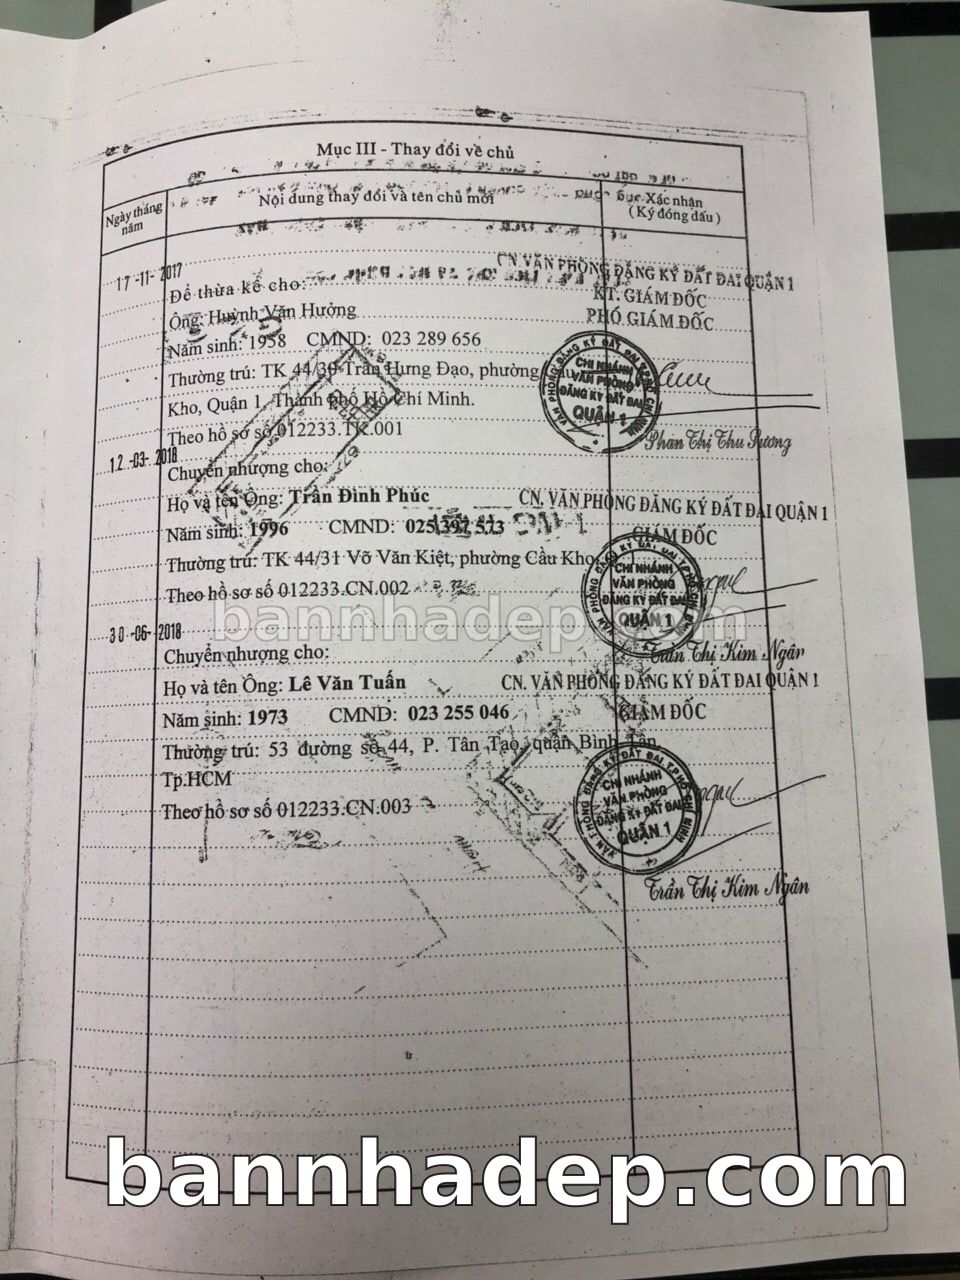 Mục III - Thay đổi về chủ
Ngày tháng năm
Nội dung thay đổi và tên chủ mới
Xác nhận
(Ký đóng dấu)
17-11-2017
Để thừa kế cho:
CN VĂN PHÒNG ĐĂNG KÝ ĐẤT ĐAI QUẬN 1
KT. GIÁM ĐỐC
Ông: Huỳnh Văn Hưởng
PHÓ GIÁM ĐỐC
Năm sinh: 1958 CMND: 023 289 656
Thường trú: TK 44/30 Trần Hưng Đạo, phường
Kho, Quận 1, Thành phố Hồ Chí Minh.
Theo hồ sơ số 012233.TK.001
VĂN PHÒNG ĐĂNG KÝ ĐẤT ĐAI TP.HỒ CHÍ MINH
CHI NHÁNH
VĂN PHÒNG
ĐĂNG KÝ ĐẤT ĐAI
QUẬN 1
Phan Thị Thu Sương
12-03-2018
Chuyển nhượng cho:
Họ và tên Ông: Trần Đình Phúc
CN. VĂN PHÒNG ĐĂNG KÝ ĐẤT ĐAI QUẬN 1
Năm sinh: 1996 CMND: 025 397 573
GIÁM ĐỐC
Thường trú: TK 44/31 Võ Văn Kiệt, phường Cầu Kho
Theo hồ sơ số 012233.CN.002
VĂN PHÒNG ĐĂNG KÝ ĐẤT ĐAI TP.HỒ CHÍ MINH
CHI NHÁNH
VĂN PHÒNG
ĐĂNG KÝ ĐẤT ĐAI
QUẬN 1
bannhadep.com
Trần Thị Kim Ngân
30-06-2018
Chuyển nhượng cho:
Họ và tên Ông: Lê Văn Tuấn
CN. VĂN PHÒNG ĐĂNG KÝ ĐẤT ĐAI QUẬN 1
Năm sinh: 1973 CMND: 023 255 046
GIÁM ĐỐC
Thường trú: 53 đường số 44, P. Tân Tạo, quận Bình Tân,
Tp.HCM
Theo hồ sơ số 012233.CN.003
VĂN PHÒNG ĐĂNG KÝ ĐẤT ĐAI TP.HỒ CHÍ MINH
CHI NHÁNH
VĂN PHÒNG
ĐĂNG KÝ ĐẤT ĐAI
QUẬN 1
Trần Thị Kim Ngân
bannhadep.com